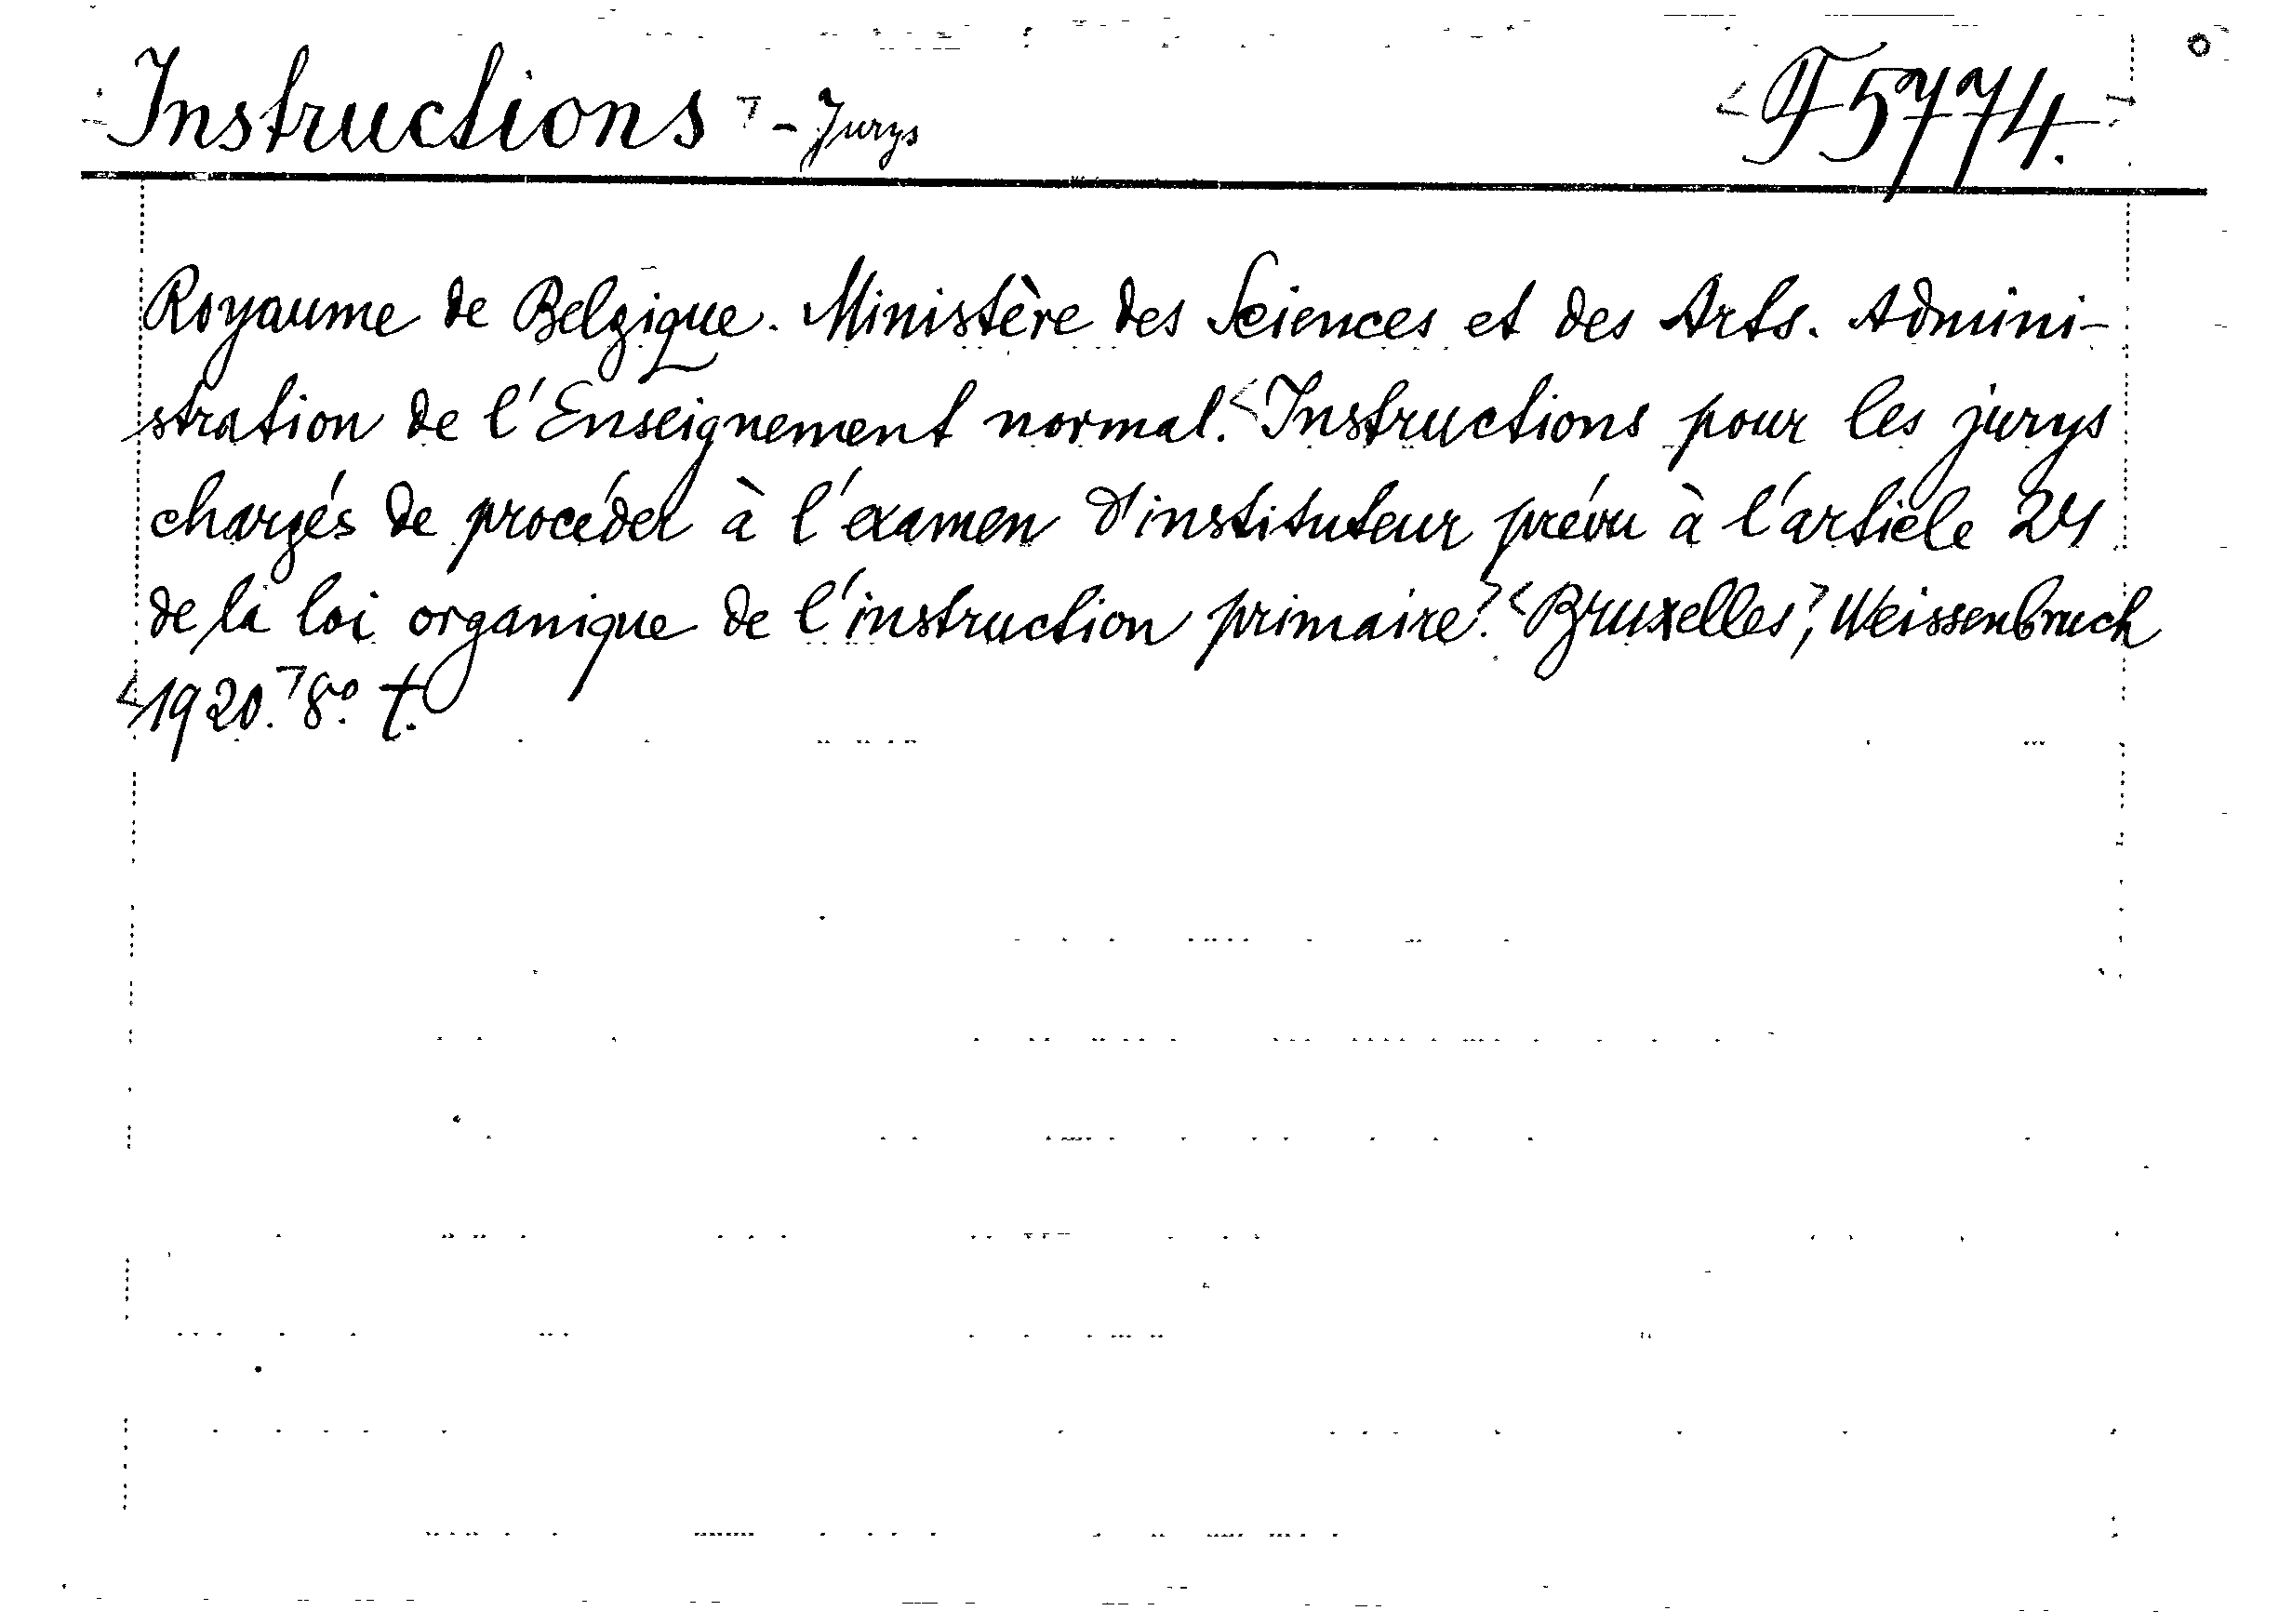 Instructions - Jurys F 5774.
Royaume de Belgique. Ministère des Sciences et des Arts. Admini-
stration de l'Enseignement normal. Instructions pour les jurys
chargés de procéder à l'examen d'instituteur prévu à l'article 24
de la loi organique de l'instruction primaire. Bruxelles, Weissenbruch
1920. 8º. t.